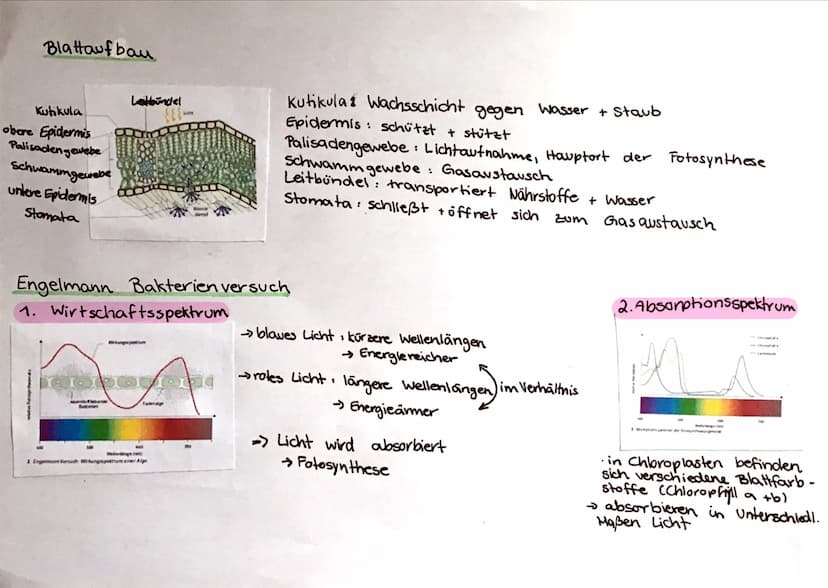 Blattaufbau
Kutikula
obere Epidermis
Palisadengewebe
Schwammgewebe
untere Epidermis
Stomata
Leitbündel
Kutikula: Wachsschicht gegen Wasser + Staub
Epidermis: schützt + stützt
Palisadengewebe: Lichtaufnahme, Hauptort der Fotosynthese
Schwammgewebe: Gasaustausch
Leitbündel: transportiert Nährstoffe + Wasser
Stomata: schließt + öffnet sich zum Gasaustausch
Engelmann Bakterienversuch
1. Wirtschaftsspektrum
Wirkungsspektrum
2 Engelmann-Versuch: Wirkungsspektrum einer Alge
→ blaues Licht: kürzere Wellenlängen
→ Energiereicher
→ rotes Licht: längere Wellenlängen
→ Energieärmer
im Verhältnis
=> Licht wird absorbiert
→ Fotosynthese
2. Absorptionsspektrum
· in Chloroplasten befinden
sich verschiedene Blattfarb-
stoffe (Chlorophyll a + b)
→ absorbieren in unterschiedl.
Maßen Licht